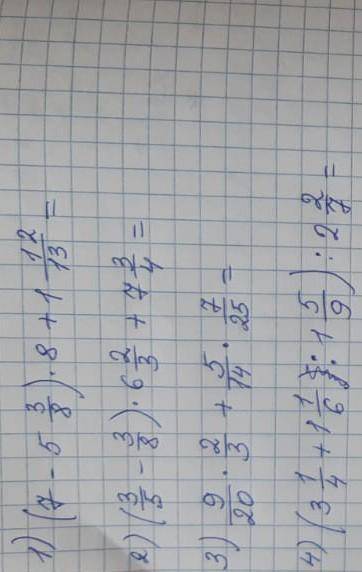 1) (7 - 5 3/8) · 8 + 1 12/13 =
2) (3/5 - 3/8) · 6 2/3 + 7 3/4 =
3) 9/20 · 2/3 + 5/14 · 7/25 =
4) (3 1/4 + 1 1/6 · 1 5/9) : 2 2/7 =